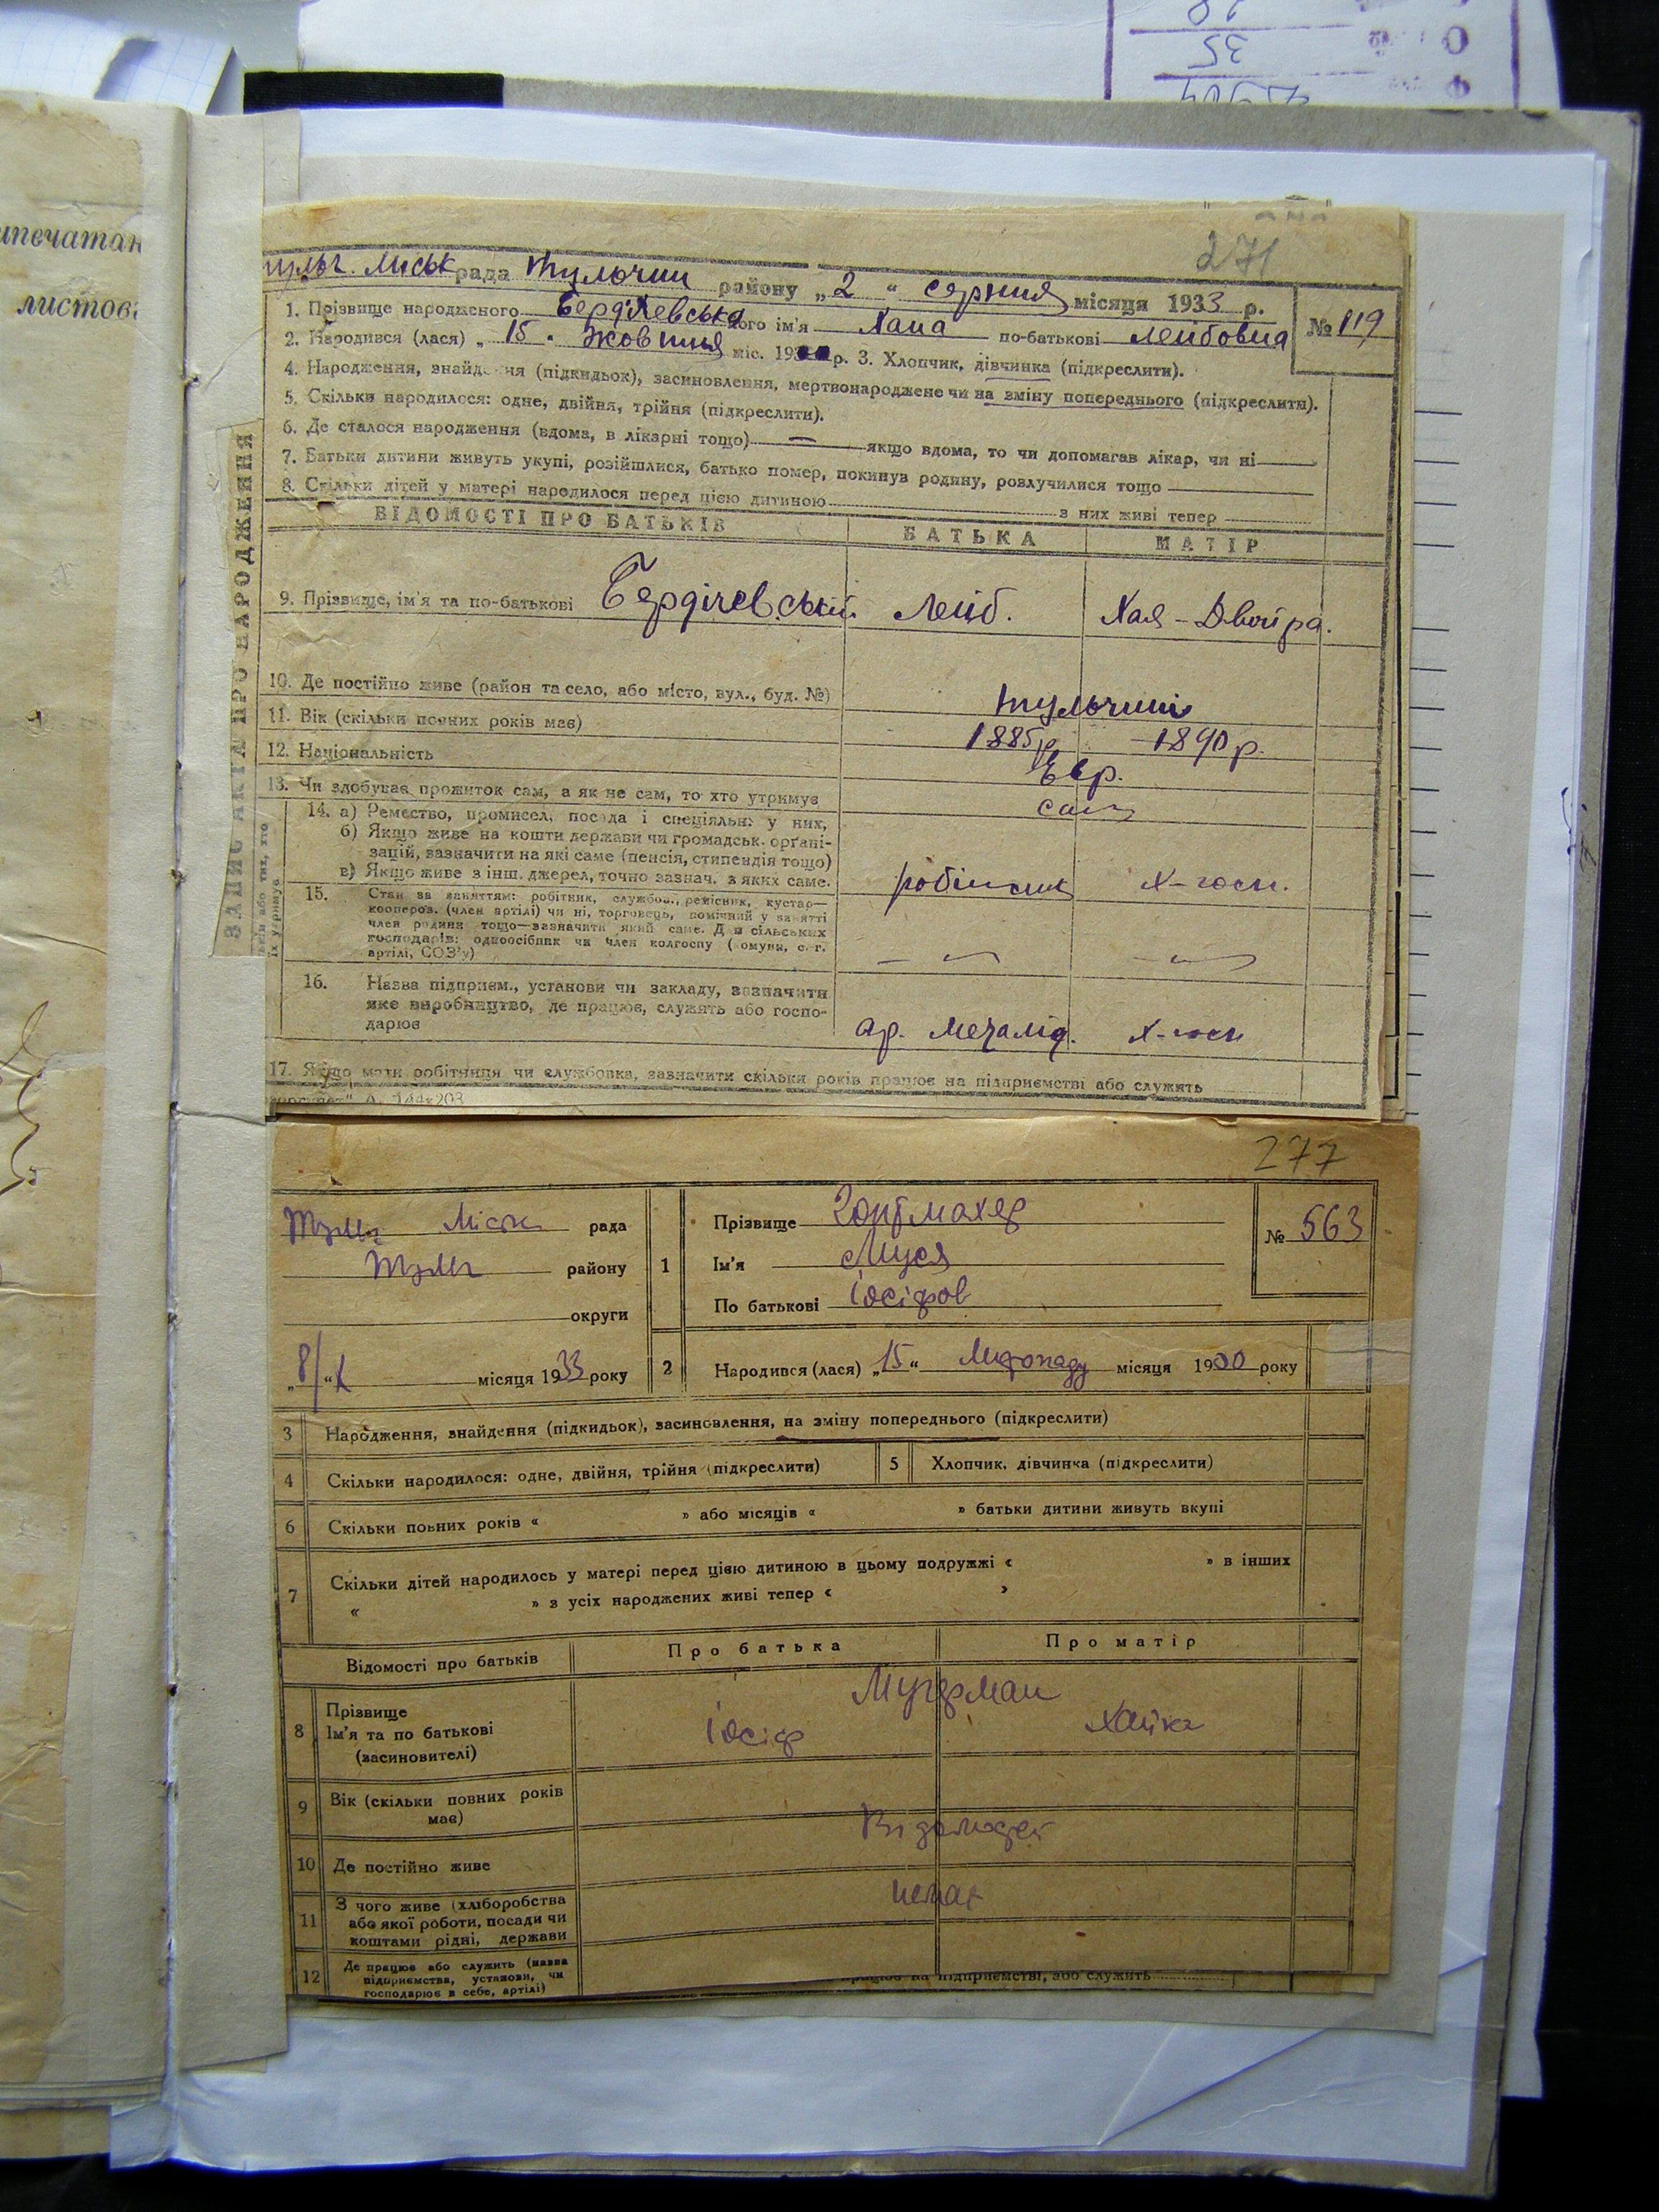 ипечатан
листов
35
271
Тульч. Міськ рада Тульчин району „2“ серпня місяця 1933 р.
№ 119
1. Прізвище народженого Бердічевська його ім'я Хана по-батькові Лейбовна
2. Народився (лася) „15“ Жовтня міс. 19 р. 3. Хлопчик, дівчинка (підкреслити).
4. Народження, знайдення (підкидьок), засиновлення, мертвонароджене чи на зміну попереднього (підкреслити).
5. Скільки народилося: одне, двійня, трійня (підкреслити).
6. Де сталося народження (вдома, в лікарні тощо) — якщо вдома, то чи допомагав лікар, чи ні
7. Батьки дитини живуть укупі, розійшлися, батько помер, покинув родину, розлучилися тощо
8. Скільки дітей у матері народилося перед цією дитиною з них живі тепер
ЗАПИС АКТА ПРО НАРОДЖЕННЯ
ВІДОМОСТІ ПРО БАТЬКІВ БАТЬКА МАТІР
9. Прізвище, ім'я та по-батькові Бердічевський Лейб. Хая-Двойра.
10. Де постійно живе (район та село, або місто, вул., буд. №) Тульчині
11. Вік (скільки повних років має) 1885р 1890р.
12. Національність Євр.
13. Чи здобуває прожиток сам, а як не сам, то хто утримує сам
14. а) Ремество, промисел, посада і спеціяльн. у них,
б) Якщо живе на кошти держави чи громадськ. органі-
зацій, зазначити на які саме (пенсія, стипендія тощо)
в) Якщо живе з інш. джерел, точно зазнач. з яких саме. робітник х-госп.
15. Стан за заняттям: робітник, службов., ремісник, кустар—
коопероз. (член артілі) чи ні, торговець, помічний у занятті
член родини тощо—зазначити який саме. Для сільських
господарів: одноосібник чи член колгоспу (комуни, с.-г.
артілі, СОЗ'у)
16. Назва підприєм., установи чи закладу, зазначити
яке виробництво, де працює, служить або госпо-
дарює ар. Металід. х-госп
17. Якщо мати робітниця чи службовка, зазначити скільки років працює на підприємстві або служить
277
Тульч Міськ рада
Тульч району
округи
„8“ X місяця 1933 року
1 Прізвище Гортмахер
Ім'я Муся
По батькові Іосіфов
№ 563
2 Народився (лася) „15“ Листопаду місяця 1900 року
3 Народження, знайдення (підкидьок), засиновлення, на зміну попереднього (підкреслити)
4 Скільки народилося: одне, двійня, трійня (підкреслити) 5 Хлопчик, дівчинка (підкреслити)
6 Скільки повних років « » або місяців « » батьки дитини живуть вкупі
7 Скільки дітей народилось у матері перед цією дитиною в цьому подружжі « » в інших
« » з усіх народжених живі тепер « »
Відомості про батьків Про батька Про матір
8 Прізвище
Ім'я та по батькові
(засиновителі)
Іосіф Хайка
9 Вік (скільки повних років
має)
10 Де постійно живе
11 З чого живе (хліборобства
або якої роботи, посади чи
коштами рідні, держави
немає
12 Де працює або служить (назва
підприємства, установи, чи
господарює в себе, артілі)
працює на підприємстві, або служить